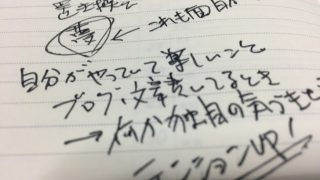 夢 ← これも面白
自分がやっていて楽しいこと
ブログ、文章書いてるとき
→何か独自の気づき
テンションUP!